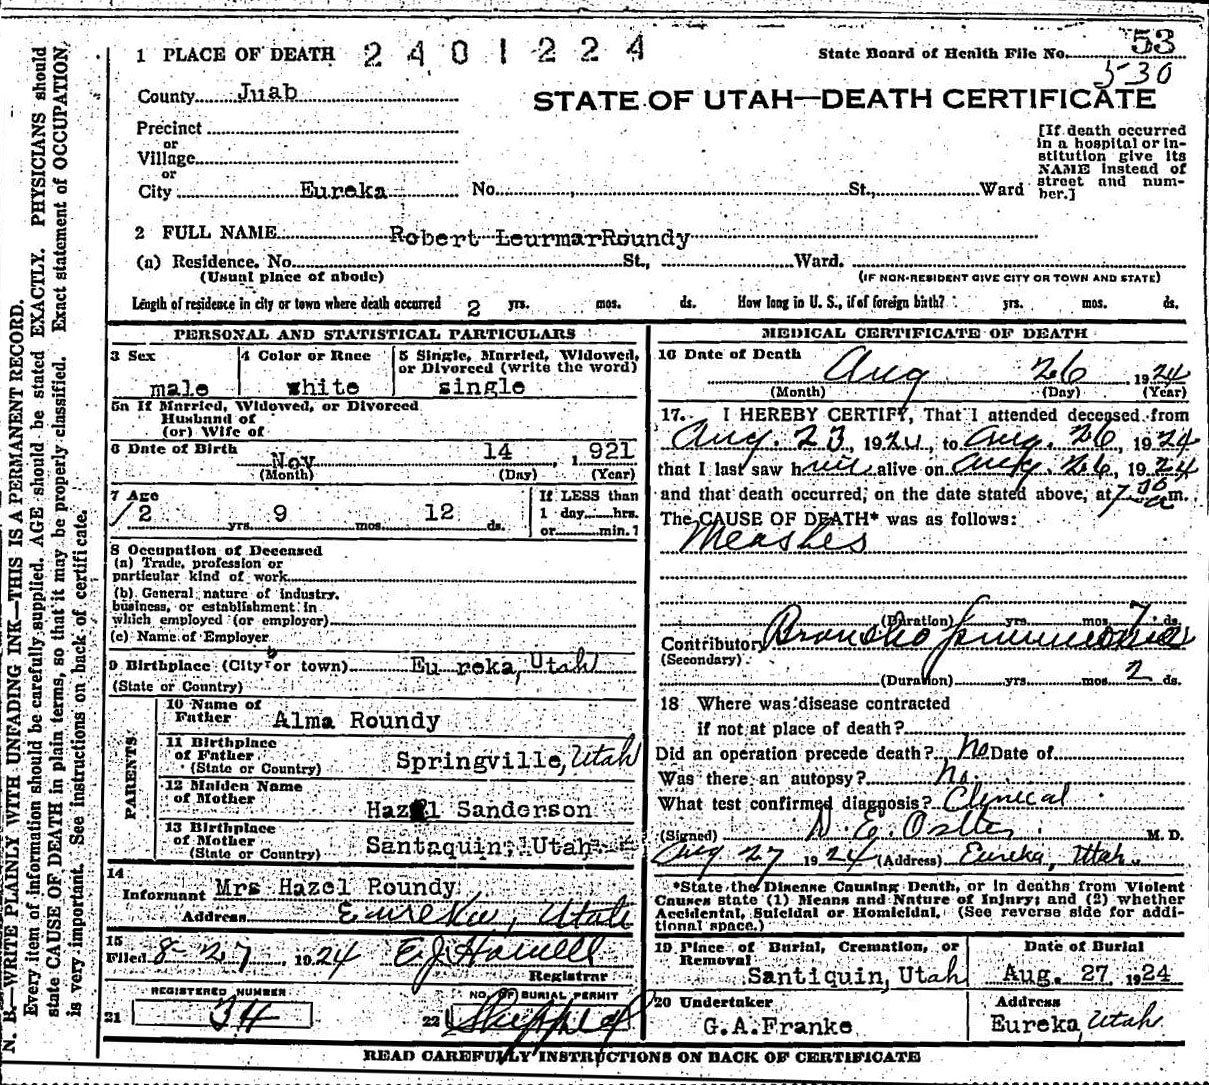 1 PLACE OF DEATH 2401224 State Board of Health File No. 53
530
County Juab STATE OF UTAH—DEATH CERTIFICATE
Precinct
or
Village
or
City Eureka No. St., Ward
[If death occurred
in a hospital or in-
stitution give its
NAME instead of
street and num-
ber.]
2 FULL NAME Robert LeurmarRoundy
(a) Residence. No. St., Ward.
(Usual place of abode) (IF NON-RESIDENT GIVE CITY OR TOWN AND STATE)
Length of residence in city or town where death occurred 2 yrs. mos. ds. How long in U. S., if of foreign birth? yrs. mos. ds.
PERSONAL AND STATISTICAL PARTICULARS
3 Sex 4 Color or Race 5 Single, Married, Widowed,
or Divorced (write the word)
male white single
5a If Married, Widowed, or Divorced
Husband of
(or) Wife of
6 Date of Birth Nov 14, 1921
(Month) (Day) (Year)
7 Age If LESS than
2 yrs. 9 mos. 12 ds. 1 day hrs.
or min.?
8 Occupation of Deceased
(a) Trade, profession or
particular kind of work
(b) General nature of industry,
business, or establishment in
which employed (or employer)
(c) Name of Employer
9 Birthplace (City or town) Eu reka, Utah
(State or Country)
PARENTS
10 Name of
Father Alma Roundy
11 Birthplace
of Father Springville, Utah
(State or Country)
12 Maiden Name
of Mother Hazel Sanderson
13 Birthplace
of Mother Santaquin, Utah
(State or Country)
14
Informant Mrs Hazel Roundy
Address Eureka, Utah
15
Filed 8-27, 1924 E.J. Howell
Registrar
REGISTERED NUMBER NO. OF BURIAL PERMIT
21 34 22
MEDICAL CERTIFICATE OF DEATH
16 Date of Death Aug 26, 1924
(Month) (Day) (Year)
17. I HEREBY CERTIFY, That I attended deceased from
Aug. 23 1924, to Aug. 26, 1924
that I last saw him alive on Aug. 26, 1924
and that death occurred, on the date stated above, at 7 30 a m.
The CAUSE OF DEATH* was as follows:
Measles
(Duration) yrs. mos. 7 ds.
Contributory Broncho pneumonia
(Secondary)
(Duration) yrs. mos. 2 ds.
18 Where was disease contracted
if not at place of death?
Did an operation precede death? No Date of
Was there an autopsy? No
What test confirmed diagnosis? Clinical
(Signed) M. D.
Aug 27 1924 (Address) Eureka, Utah
*State the Disease Causing Death, or in deaths from Violent
Causes state (1) Means and Nature of Injury; and (2) whether
Accidental, Suicidal or Homicidal. (See reverse side for addi-
tional space.)
19 Place of Burial, Cremation, or Date of Burial
Removal
Santiquin, Utah Aug. 27 1924
20 Undertaker Address
G.A.Franke Eureka, Utah
READ CAREFULLY INSTRUCTIONS ON BACK OF CERTIFICATE
N. B.—WRITE PLAINLY WITH UNFADING INK—THIS IS A PERMANENT RECORD.
Every item of information should be carefully supplied. AGE should be stated EXACTLY. PHYSICIANS should
state CAUSE OF DEATH in plain terms, so that it may be properly classified. Exact statement of OCCUPATION
is very important. See instructions on back of certificate.